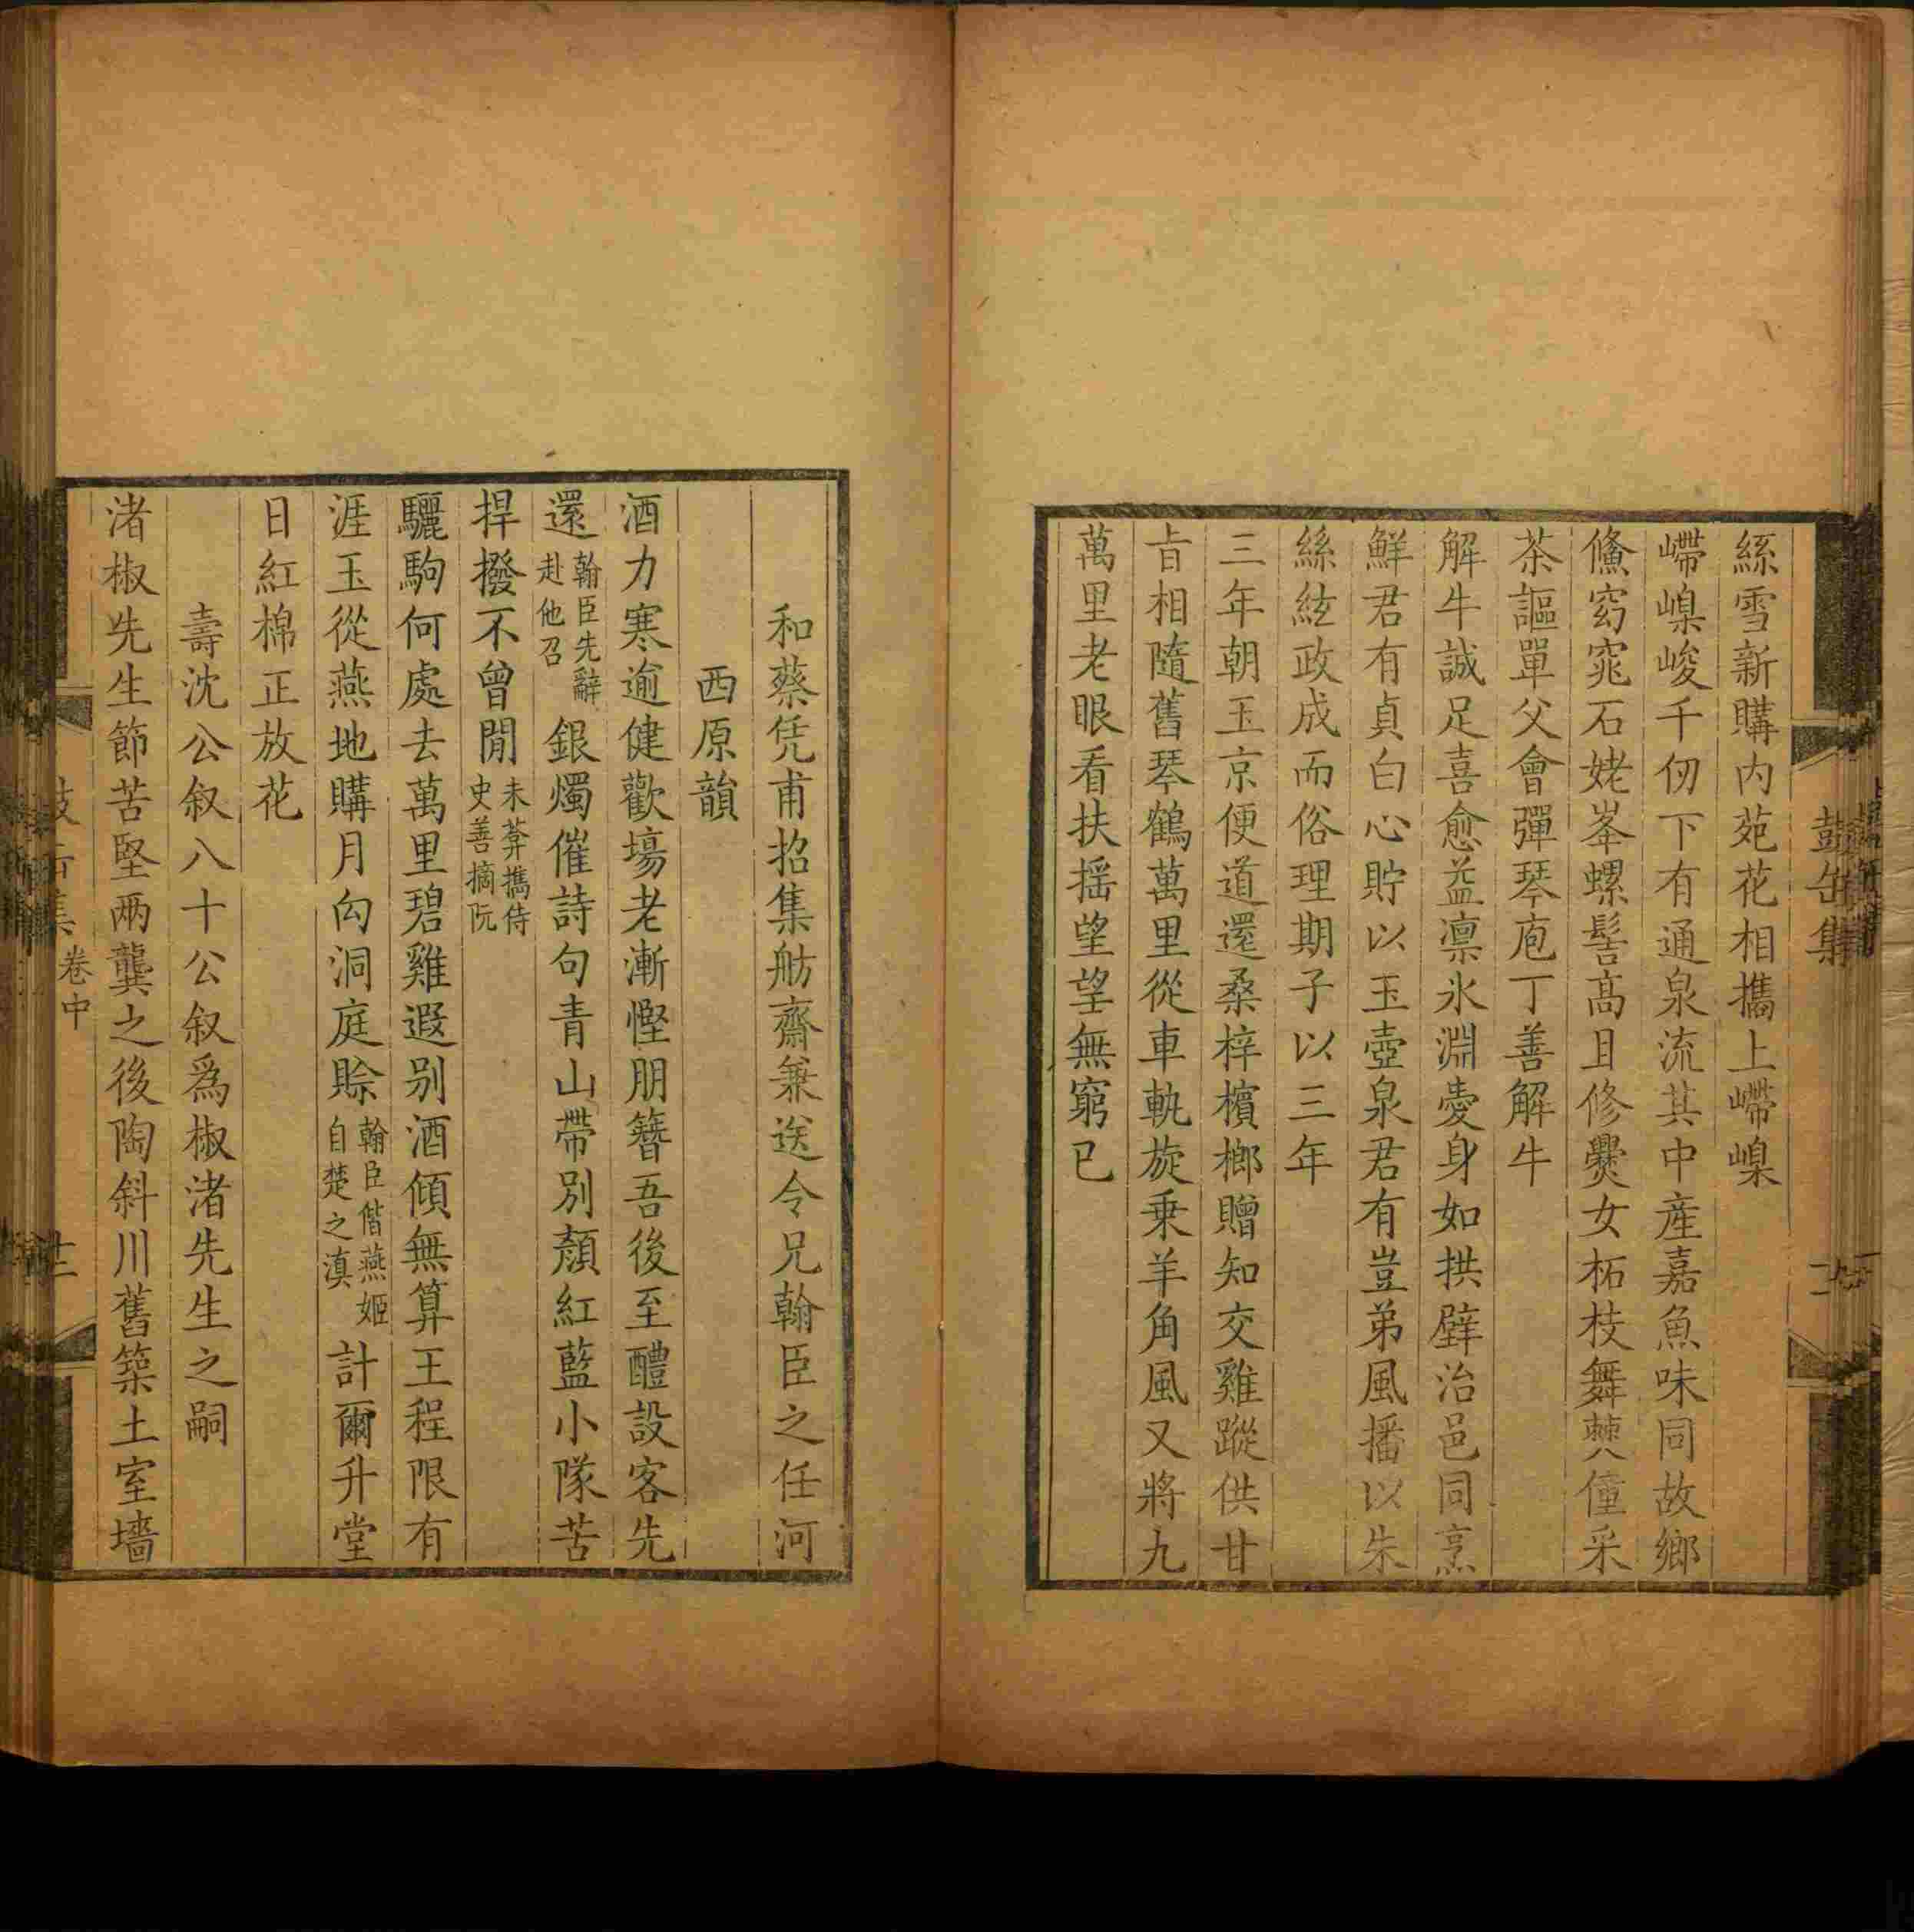 絲雪新購内苑花相攜上嵽嵲
嵽嵲峻千仞下有通泉流其中産嘉魚味同故鄉
鯈窈窕石姥峯螺髻高且修爨女柘枝舞僰僮采
茶謳單父會彈琴庖丁善解牛
解牛誠足喜愈益凛氷淵愛身如拱璧治邑同烹
鮮君有貞白心貯以玉壺泉君有豈弟風播以朱
絲絃政成而俗理期子以三年
三年朝玉京便道還桑梓檳榔贈知交雞蹤供甘
㫖相隨舊琴鶴萬里從車軌旋乗羊角風又將九
萬里老眼看扶摇望望無窮已
鼓缶集
和蔡凭甫招集舫齋兼送令兄翰臣之任河
西原韻
酒力寒逾健歡塲老漸慳朋簪吾後至醴設客先
還翰臣先辭赴他召銀燭催詩句青山帶别顔紅藍小隊苦
捍撥不曾閒未葊攜侍史善摘阮
驪駒何處去萬里碧雞遐别酒傾無算王程限有
涯玉從燕地購月向洞庭賒翰臣偕燕姬自楚之滇計爾升堂
日紅棉正放花
壽沈公叙八十公叙爲椒渚先生之嗣
渚椒先生節苦堅兩龔之後陶斜川舊築土室墻
卷中